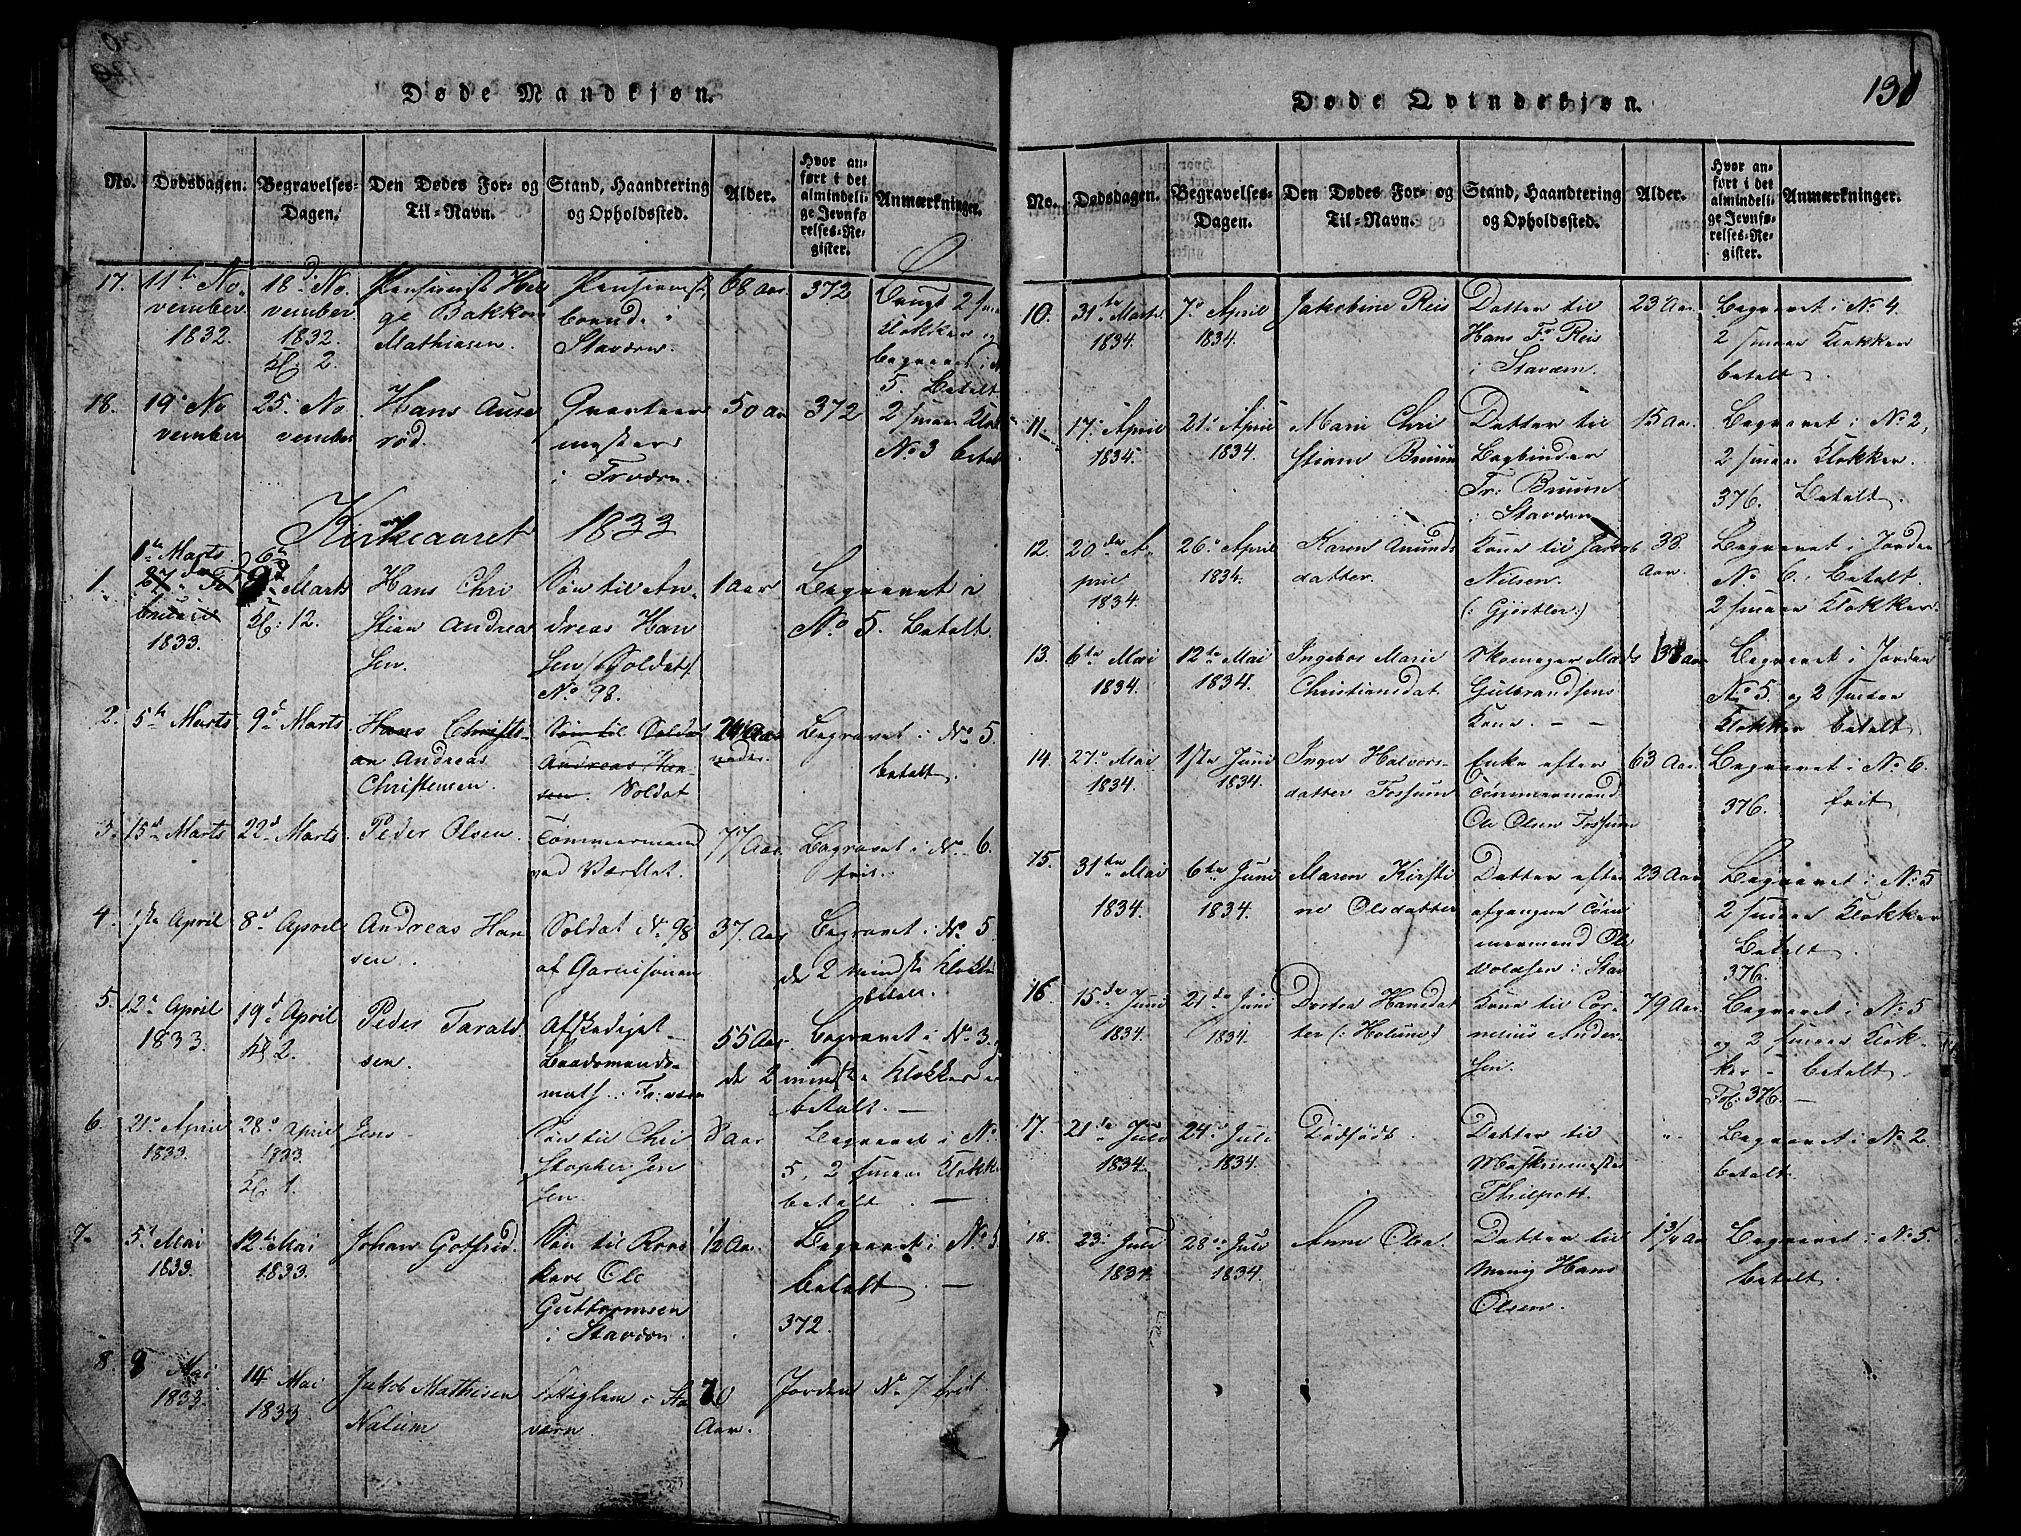 Døde Mandkjøn.
No.
Dødsdagen.
Begravelses-
Dagen.
Den Dødes For- og
Til-Navn.
Stand, Haandtering
og Opholdssted.
Alder.
Hvor an-
ført i det
almindeli-
ge Jevnfø-
relses-Re-
gister.
Anmærkninger.
17.
11te No
vember
1832.
18d No
vember
1832.
Kl. 2.
Pensionist Hel
ge Bakken
Mathiesen.
Pensionist
boende i
Stavern.
68 Aar.
372
Brugt 2 smaa
Klokker og
begravet i N
5. Betalt
18.
19de No
vember
25. No
vember
Hans Ause
rød.
Qvarteer
mester
i Fr:værn.
50 Aar
372
2 smaa Klok
No 3 betalt
Kirkeaaret 1833
1.
1te Marts
27de Fe
bruarii
1833.
6te
Marts
Kl: 12.
Hans Chri
stian Andrea
sen.
Søn til An-
dreas Han
sen /Soldat/
No 98.
1 Aar
Begravet i
No 5. Betalt.
2.
5te Marts
9d Marts
Hans Christi-
an Andreas
Christensen.
Søn til Soldat
Andreas Han-
sen. Soldat
Begravet i No 5.
betalt.
3.
15d Marts
22d Marts
Peder Olsen.
Tømmermand
ved Værftet.
77 Aar.
Begravet i No 6.
frit.
4.
1ste April
8d April
Andreas Han
sen.
Soldat No 98
af Garnisonen
37 Aar
Begravet i No 5.
de 2 mindste Klokker
betalt.
5.
12te April
1833.
19d April
Kl 2.
Peder Tarald
sen.
Afskediget
Baadsmands-
math i Fr:værn
55 Aar.
Begravet i No 3.
de 2 mindste Klokker
betalt. —
6.
21de April
1833.
28d April
1833.
Kl. 1.
Jens
Søn til Chri
stopher Jen
sen.
Aar
Begravet i No
5, 2 smaa Klokke
betalt. —
7.
5te Mai
1833.
12te Mai
1833.
Johan Gotfrid.
Søn til
Ole
Guttormsen
i Stavern.
1/2 Aar.
Begravet i No 5
betalt. —
372.
8.
Mai
1833.
14 Mai
1833
Jakob Mathisen
Nalum
i Sta
værn.
70
Aar.
Jorden No 7 frit.
131
Døde Qvindekjøn.
No.
Dødsdagen.
Begravelses-
Dagen.
Den Dødes For- og
Til-Navn.
Stand, Haandtering
og Opholdssted.
Alder.
Hvor an-
ført i det
almindeli-
ge Jevnfø-
relses-Re-
gister.
Anmærkninger.
10.
31te Marts
1834.
7de April
1834.
Jakobine Reis
Datter til
Hans Fr Reis
i Stavern.
23 Aar.
Begravet i No 4
2 smaae Klokker
betalt.
11.
17de April
1834.
21de April
1834.
Marie Chri
stiane Bruun
Datter til
Bogbinder
Fr: Bruun
i Stavern
15 Aar.
Begravet i No 2,
2 smaae Klokker.
376. Betalt.
12.
20de A-
pril
1834.
26de April
1834.
Karen Amunds
datter.
Kone til Jakob
Nilsen.
(: Gjørtler:)
38.
Aar.
Begravet i Jorden
No 6. Betalt.
2 smaae Klokker.
13.
6te Mai
1834.
12te Mai
1834.
Ingebor Marie
Christiansdat
Skomager Mads
Gulbrandsens
Kone. — —
Aar
Begravet i Jorden
No 5. og 2 smaae
Klokker betalt.
14.
27de Mai
1834.
1ste Juni
1834.
Inger Halvors-
datter Fossum
Enke efter
Tømmermand
Ole Olsen Fossum
63 Aar.
Begravet i No 6.
376. frit
15.
31te Mai
1834.
6te Juni
1834.
Maren Kirsti
ne Olsdatter
Datter efter
afgangne Tøm
mermand Ole
Olsen i Stav
23 Aar
Begravet i No 5
2 smaae Klokker
Betalt
376.
16.
15de Juni
1834.
21de Juni
1834.
Dorthea Hansdat
ter (: Holund)
Kone til Cor-
nelius Ander-
sen.
79 Aar.
Begravet i No 5
og 2 smaae Klok-
ker — betalt.
Fol: 376. —
17.
21de Juli
1834.
24de Juli
1834.
Dødfødt.
Datter til
Maskinmester
Philpott.
"
Begravet i No 2.
betalt.
18.
23. Juli
1834.
28de Juli
1834.
Anne Olea.
Datter til
menig Hans
Olsen.
1 3/4 Aar
Begravet i No 5.
betalt.